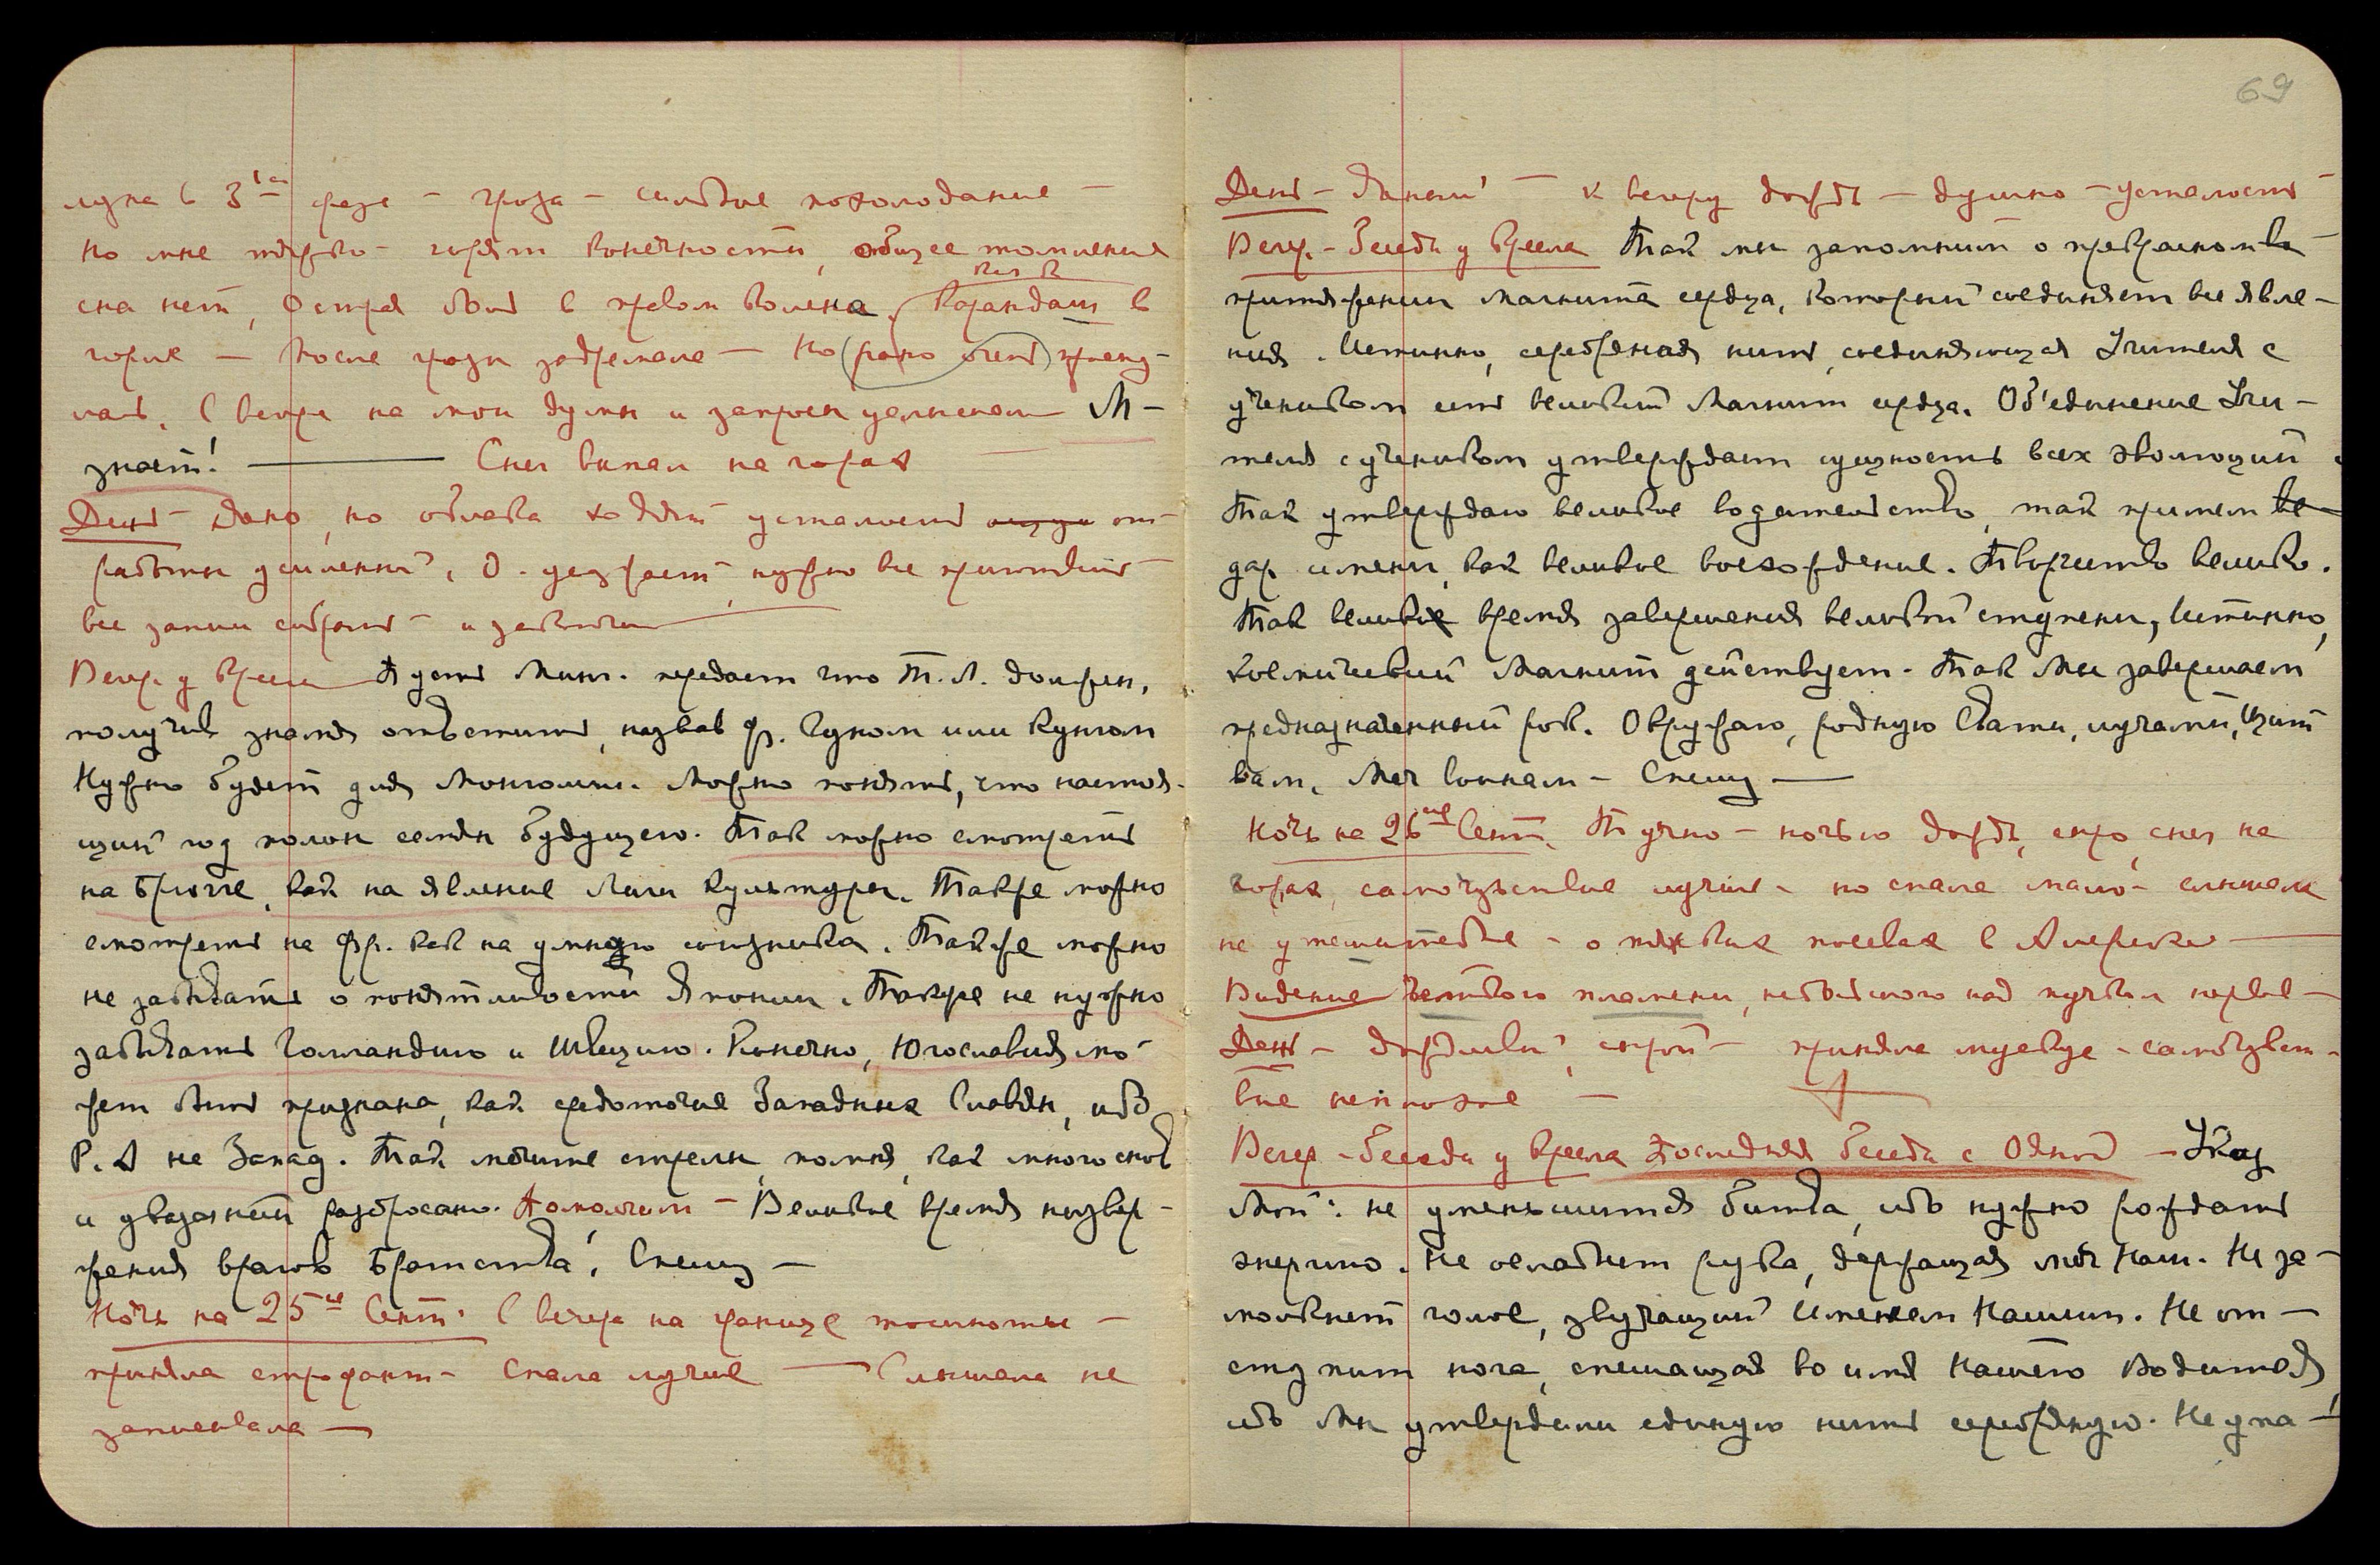 луна в 3ей фазе — гроза — сильное похолодание —
но мне тяжко — горят конечности, общее томление
сна нет, острая боль в правом колене, карандаш в
горле — После грозы задремала — Но (рано очень) просну-
лась. С вечера на мои думы и запросы услышала М —
знает! — Снег выпал на горах
День — Ясно, но облака ходят усталость от
работы усиленный. О. уезжает, нужно все приготовить —
все записи собрать — и закончить
Вечер у Кресла Пусть Минг. передаст что Т.Л. должен,
получив знамя ответить, назвав Фр. Другом или Кунгом
Нужно будет для Монголии. Можно понять, что настоя-
щий год полон семян будущего. Так можно смотреть
на Брюгге, как на явление Лиги Культуры. Также можно
смотреть на Фр. как на умную союзника. Также можно
не забывать о понятливости Японии. Также не нужно
забывать Голландию и Швецию. Конечно, Югославия мо-
жет быть признана, как средоточие Западных Славян, ибо
Р. А не Запад. Так мечите стрелы, помня, как много снов
и указаний разбросано. Помолчим — Великое время низвер-
жения врагов Братства! Спешу —
Ночь на 25ое Сент. С вечера на границе тошноты —
приняла строфант — Спала лучше — Слышала не
записывала —
69
День — Ясный — к вечеру дождь — душно — усталость —
Вечер. — Беседа у Кресла Так мы запомним о прекрасном
притяжении магнита сердца, который соединяет все явле-
ния. Истинно, серебряная нить, соединяющая Учителя с
учеником есть великий Магнит сердца. Об'единение Учи-
теля с учеником утверждает сущность всех эволюций.
Так утверждаю великое водительство, так примем
дар имени, как великое восхождение. Творчество велико.
Так велико время завершения великой ступени, Истинно,
космический Магнит действует. Так Мы завершаем
предназначенный рок. Окружаю, родную Свати, лучами, щит
вам, Меч воинам — Спешу —
Ночь на 26ое Сент. Тучно — ночью дождь, снег на
горах, самочувствие лучше — но спала мало — слышала
не утешительное — о тяжких посевах в Америке —
Видение желтого пламени, небольшого над пучком нервов —
День — дождливый, серый — приняла мускус — самочувст-
вие неплохое —
Вечер — Беседа у Кресла Последняя беседа с Ояной — Указ
Мой: не уменьшится битва, ибо нужно рождать
энергию. Не ослабнет рука, держащая меч Наш. Не за-
молкнет голос, звучащий Именем Нашим. Не от-
ступит нога, спешащая во имя Нашего Водителя,
ибо Мы утвердили единую нить серебряную. Неупа-